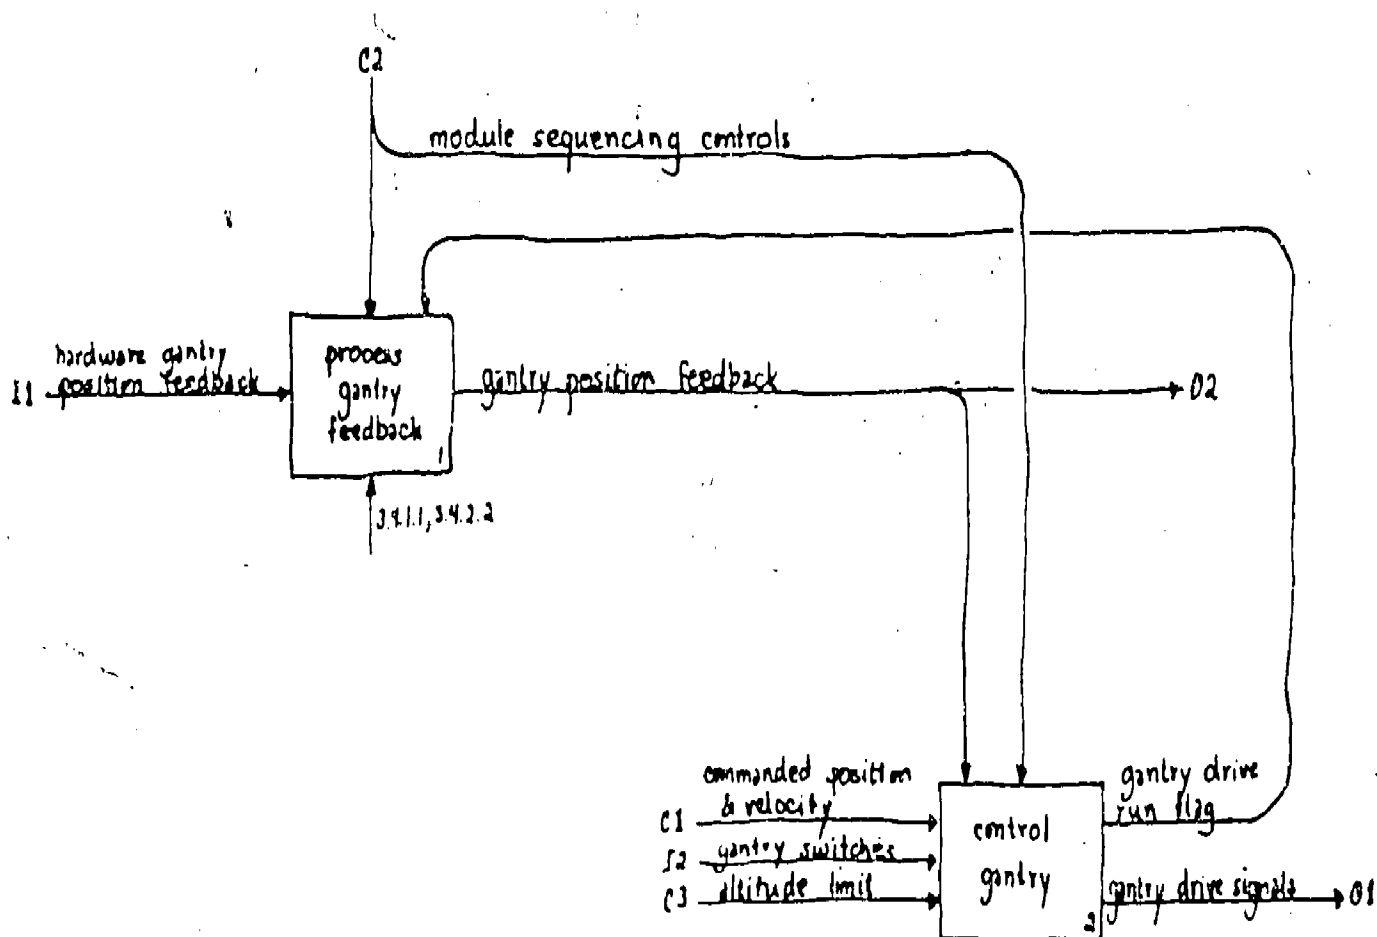 C2
module sequencing controls
hardware gantry
I1 position feedback
process
gantry
feedback
1
gantry position feedback
O2
commanded position
& velocity
C1
I2 gantry switches
C3 altitude limit
control
gantry
2
gantry drive
run flag
gantry drive signals
O1